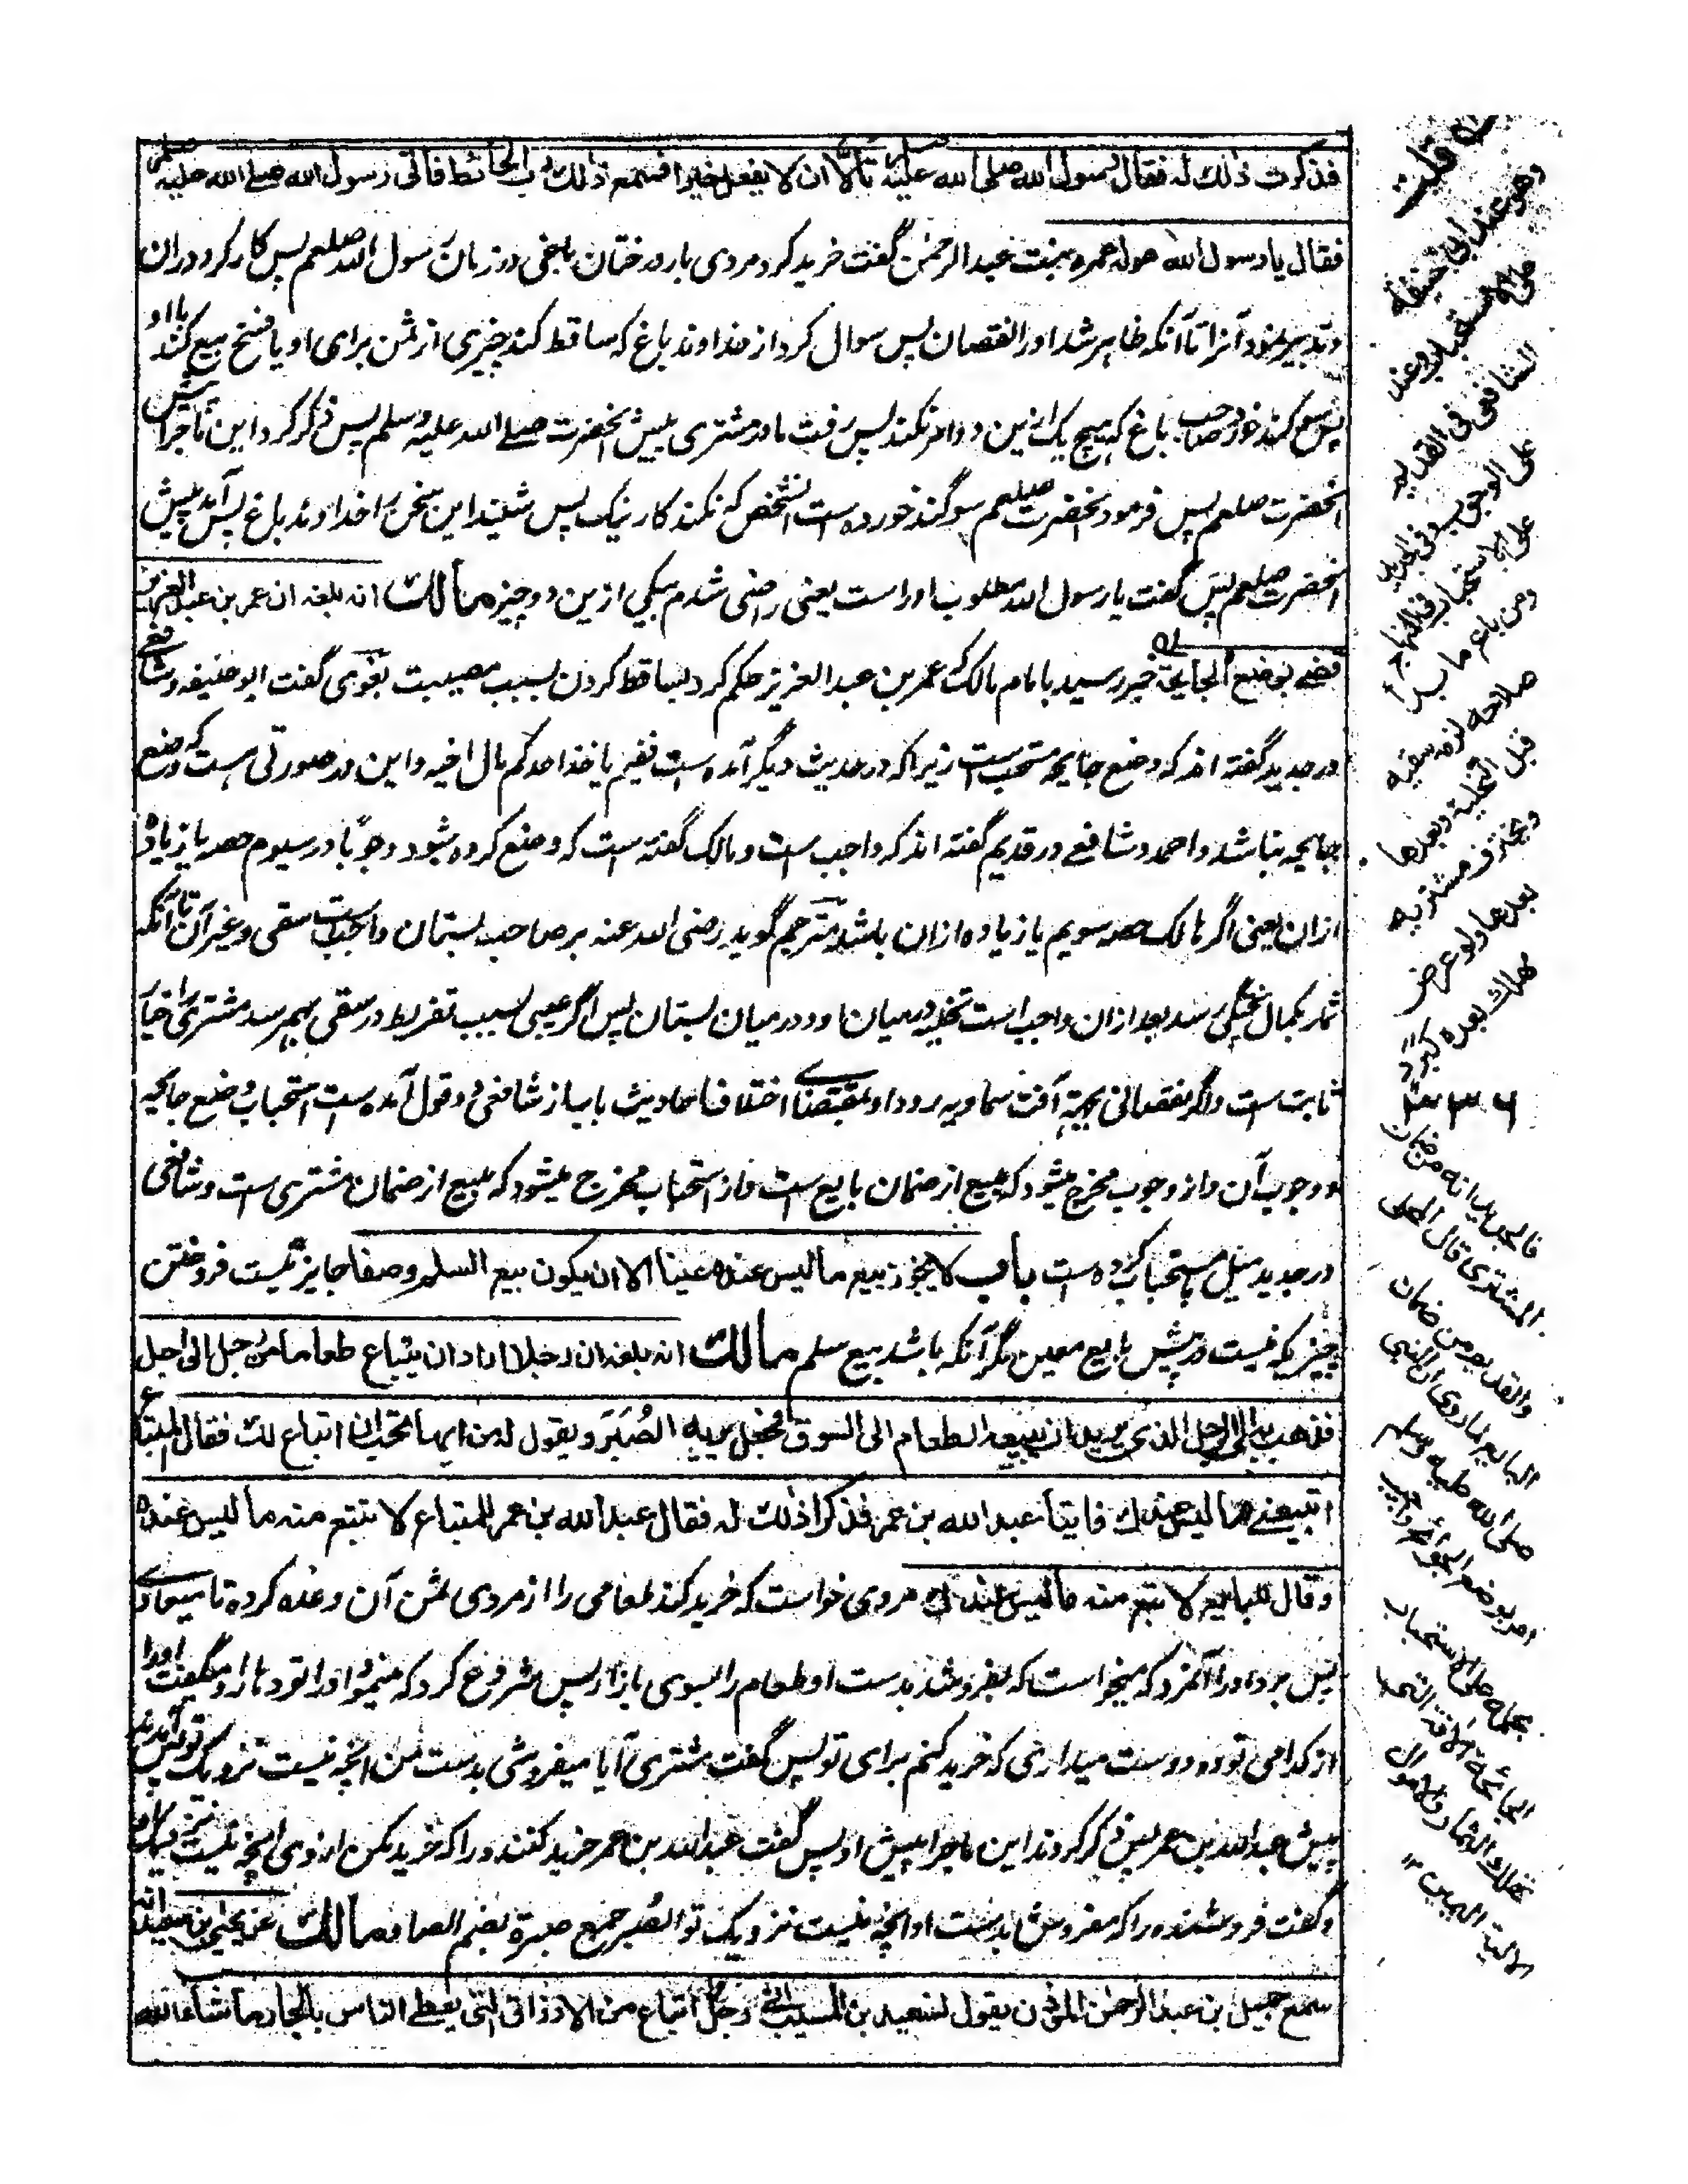 فذكرت ذلك له فقال رسول الله صلى الله عليه وسلم تألى ان لا يفعل خيرا فسمع ذلك رب الحائط فاتى رسول الله صلى الله عليه وسلم
فقال يا رسول الله هو له عمره بنت عبد الرحمن گفت خرید کرد مردی بار درختان باغی در زمان رسول الله صلعم پس کار کرد دران
و تدبیر نمود آنرا تا آنکه ظاهر شد او را نقصان پس سوال کرد از خداوند باغ که ساقط کند چیزی از ثمن برای او یا فسخ بیع کند با او
پس سوگند خورد صاحب باغ که هیچ یک ازین دو امر نکند پس رفت مادر مشتری پیش آنحضرت صلے الله علیه وسلم پس ذکر کرد این ماجرا پیش
آنحضرت صلعم پس فرمود آنحضرت صلعم سوگند خورده است آنشخص که نکند کار نیک پس شنید این سخن را خداوند باغ پس آمد پیش
آنحضرت صلعم پس گفت یا رسول الله مطلوب او راست یعنی راضی شدم بیکی ازین دو چیز مالك انه بلغه ان عمر بن عبد العزيز
قضے بوضع الجايحة خبر رسید بامام مالک که عمر بن عبد العزیز حکم کرد بساقط کردن بسبب مصیبت بغوی گفت ابو حنیفه و شافعے
در جدید گفته اند که وضع جایحه مستحب است زیرا که در حدیث دیگر آمده است فبم یاخذ احدکم مال اخیه و این در صورتی است که وضع
جایحه نباشد و احمد و شافعے در قدیم گفته اند که واجب است و مالک گفته است که وضع کرده شود وجوبا در سیوم حصه یا زیاده
ازان یعنی اگر هالک حصه سویم یا زیاده ازان باشد مترجم گوید رضی الله عنه بر صاحب بستان واجب است سقی و غیر آن تا آنکه
ثمار بکمال پختگی رسد بعد ازان واجب است تخلیه درمیان او و درمیان بستان پس اگر عیبی بسبب تفریط در سقی بهم رسد مشتری را خیار
ثابت است و اگر نقصانی بجهة آفت سماویه رو داد بمقتضاے اختلاف احادیث باب از شافعی دو قول آمده است استحباب وضع جایحه
و وجوب آن و از وجوب مخرج میشود که مبیع از ضمان بایع است و از استحباب مخرج میشود که مبیع از ضمان مشتری است و شافعی
در جدید میل باستحباب کرده است باب لا يجوز بيع ما ليس عنده عينا الا ان يكون بيع السلم وصفا جایز نیست فروختن
چیزیکه نیست در پیش بایع معین مگر آنکه باشد بیع سلم مالك انه بلغه ان رجلا اراد ان يبتاع طعاما من رجل الى اجل
فذهب به الرجل الذى يريد ان يبيعه الطعام الى السوق فجعل يريه الصُبَر و يقول له من ايها تحب ان ابتاع لك فقال المبتاع
اتبيعنے ما ليس عندك فاتيا عبد الله بن عمر فذكرا ذلك له فقال عبد الله بن عمر للمبتاع لا تبتع منه ما ليس عنده
وقال للبايع لا تبع منه ما ليس عندك مردی خواست که خرید کند طعامی را از مردی ثمن آن وعده کرده تا میعادے
پس برد او را آنمرد که میخواست که بفروشد بدست او طعام را بسوی بازار پس شروع کرد که مینمود او را تودها را و میگفت او را
از کدامی توده دوست میداری که خرید کنم برای تو پس گفت مشتری آیا میفروشی بدست من آنچه نیست نزدیک تو پس آمدند
پیش عبد الله بن عمر پس ذکر کردند این ماجرا پیش او پس گفت عبد الله بن عمر خرید کننده را که خرید مکن از وی آنچه نیست نزدیک او
و گفت فروشنده را که مفروش بدست او آنچه نیست نزدیک تو الصُبَر جمع صبرة بضم الصاد مالك عن يحيى بن سعيد انه
سمع جميل بن عبد الرحمن المؤذن يقول لسعيد بن المسيب انى رجل ابتاع من الارزاق التى يعطے الناس بالجار ما شاء الله
قلت
وهو عند ابي حنيفة
على الاستحباب وعند
الشافعى فى القديم
على الوجوب وفى الجديد
على الاستحباب فى المنهاج
ومن باع ما بدا
صلاحه لزمه سقيه
قبل التخلية وبعدها
ويتصرف مشتريه
بعدها ولو عرض
مهلك بعده كبرد
فالجديد انه من ضمان
المشترى قال المحلى
والقديم من ضمان
البايع لما روى ان النبي
صلى الله عليه وسلم
امر بوضع الجوائح واجيب
بحمله على الاستحباب
الجائحة الآفة التى
تهلك الثمار والاموال